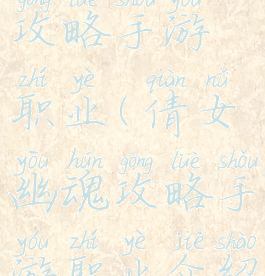 gōng lüè shǒu yóu
攻略手游
zhí yè qiàn nǚ
职业(倩女
yōu hún gōng lüè shǒu
幽魂攻略手
yóu zhí yè jiè shào
游职业介绍